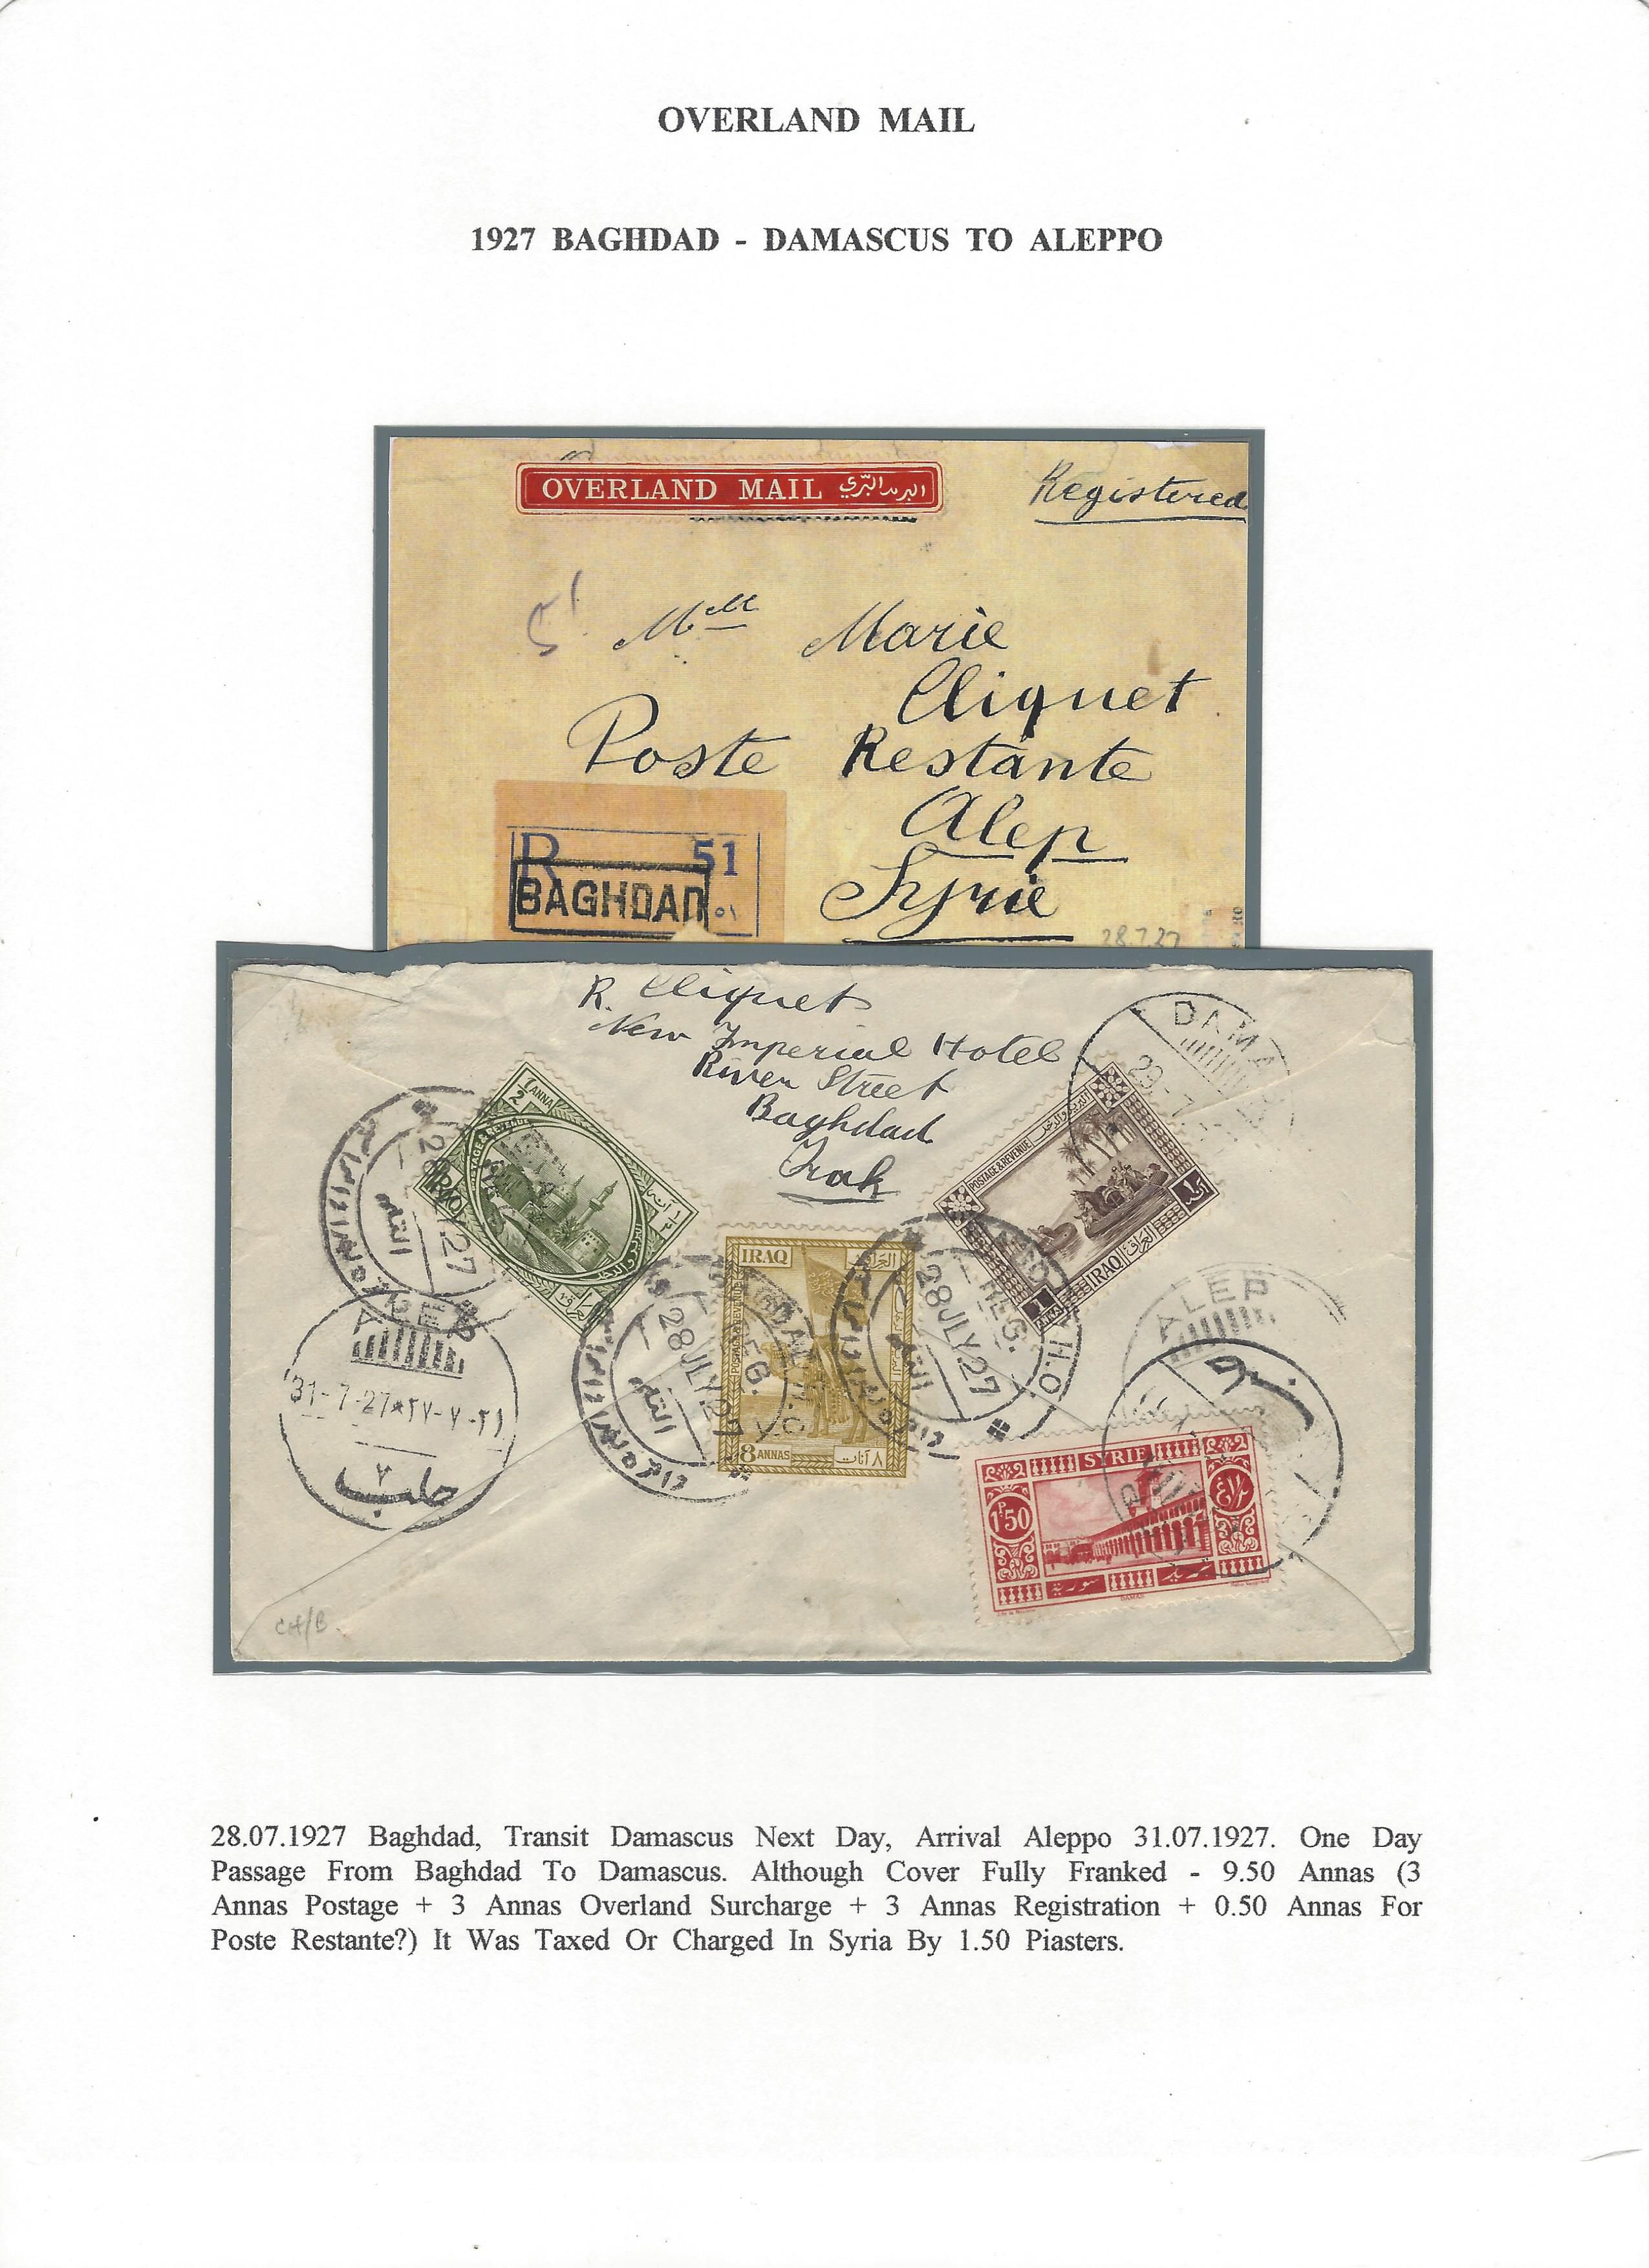 OVERLAND MAIL
1927 BAGHDAD - DAMASCUS TO ALEPPO
OVERLAND MAIL البريد البرّي
Registered
51
Mlle Marie
Cliquet
Poste Restante
Alep
Syrie
R 51
BAGHDAD ٥١
28.7.27
R. Cliquet
New Imperial Hotel
River Street
Baghdad
Irak
DAMA
29-7
ANNA
IRAQ
28 JLY.27
POSTAGE & REVENUE
1 ANNA IRAQ العراق ١ آنة
IRAQ العراق
8 ANNAS ٨ آنات
REG.
28 JLY.27
REG. H.O
28 JLY.27
ALEP
31-7-27*٢٧-٧-٣١
٢
حلب
ALEP
SYRIE
1P50
سورية
DAMAS
CH/B.
28.07.1927 Baghdad, Transit Damascus Next Day, Arrival Aleppo 31.07.1927. One Day
Passage From Baghdad To Damascus. Although Cover Fully Franked - 9.50 Annas (3
Annas Postage + 3 Annas Overland Surcharge + 3 Annas Registration + 0.50 Annas For
Poste Restante?) It Was Taxed Or Charged In Syria By 1.50 Piasters.